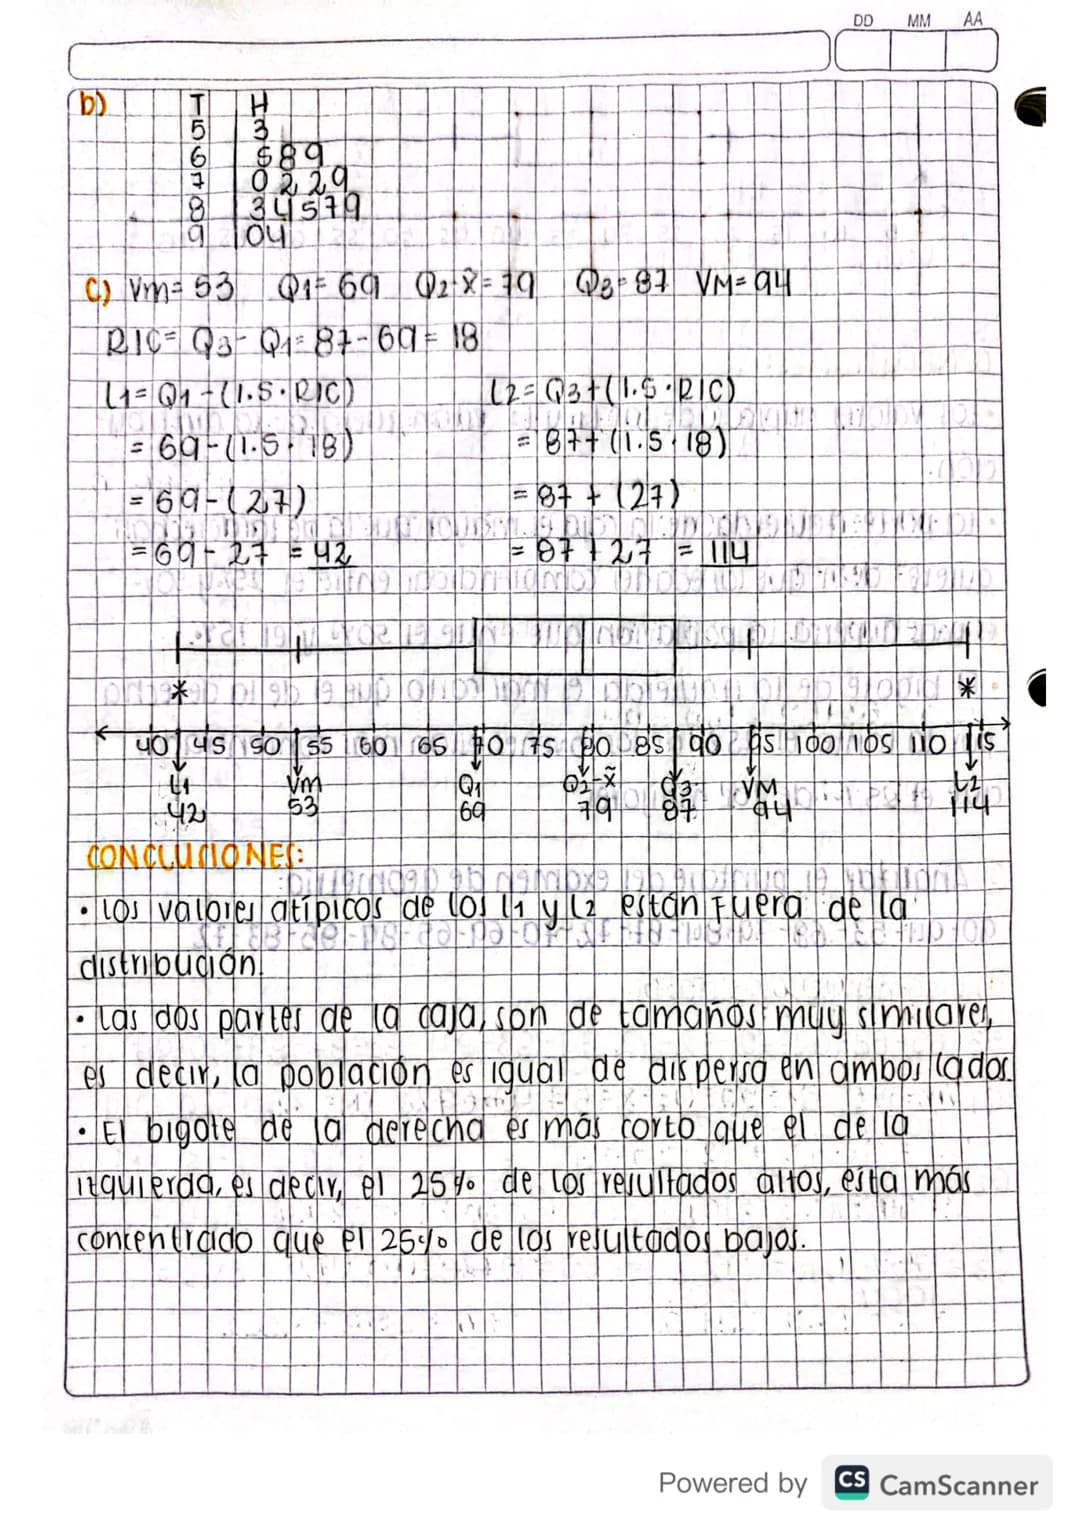 DD MM AA
b) T H
5 3
6 589
7 0229
8 34579
9 04
c) Vm= 53 Q1= 69 Q2-x̃= 79 Q3= 87 VM= 94
RIC= Q3- Q1= 87-69= 18
L1= Q1-(1.5·RIC) L2= Q3+(1.5·RIC)
= 69-(1.5·18) = 87+(1.5·18)
= 69-(27) = 87+(27)
=69-27 = 42 = 87+27 = 114
* *
40 45 50 55 60 65 70 75 80 85 90 95 100 105 110 115
L1 Vm Q1 Q2-x̃ Q3 VM L2
42 53 69 79 87 94 114
CONCLUCIONES:
• Los valores atípicos de los L1 y L2 están fuera de la
distribución.
• Las dos partes de la caja, son de tamaños muy similares,
es decir, la población es igual de dispersa en ambos lados.
• El bigote de la derecha es más corto que el de la
izquierda, es decir, el 25% de los resultados altos, esta más
concentrado que el 25% de los resultados bajos.
Powered by CS CamScanner